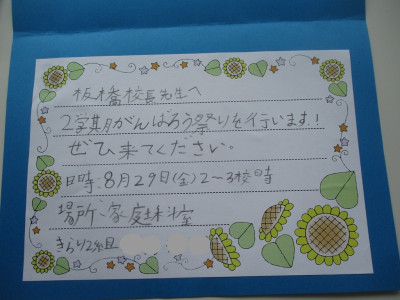 板橋校長先生へ
2学期がんばろう祭りを行います!
ぜひ来てください。
日時:8月29日(金)2〜3校時
場所:家庭科室
きらり2組